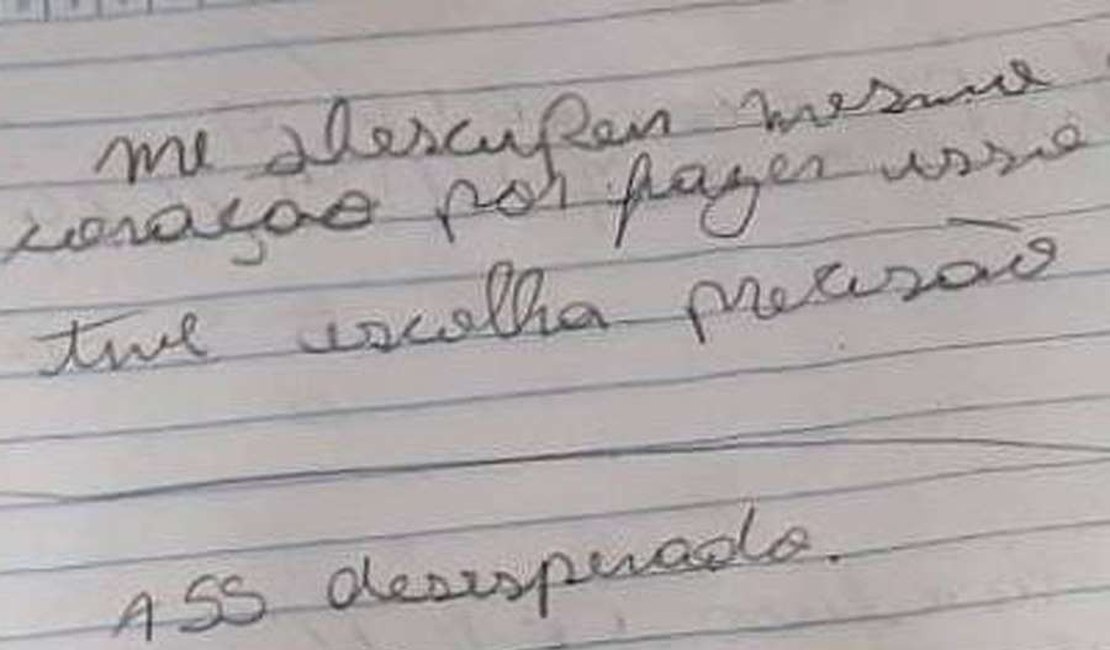 me descupen mesmo
coração por fazer isso
tive escolha precisão
ASS desesperado.